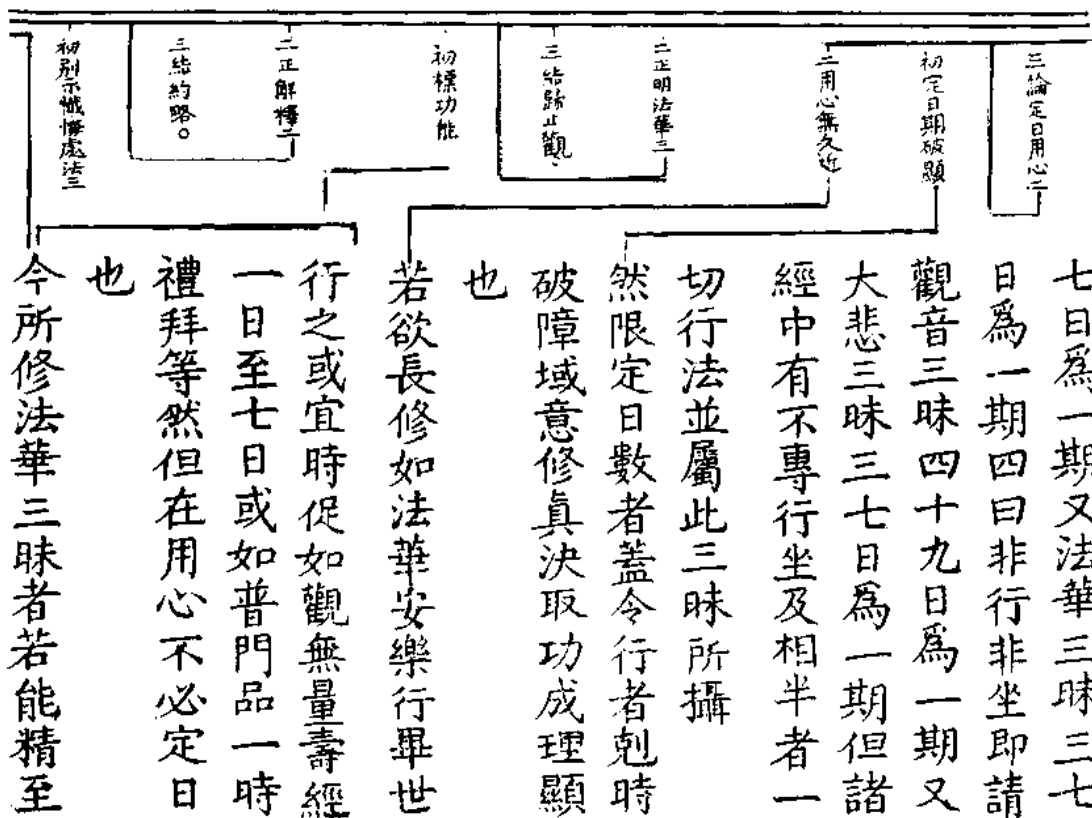 三論定日用心二
初定日期破顯
二用心無久近
二正明法華三
三結歸止觀、
初標功能
二正解釋二
三結約略。
初別示懺悔處法三
七日爲一期又法華三昧三七
日爲一期四曰非行非坐即請
觀音三昧四十九日爲一期又
大悲三昧三七日爲一期但諸
經中有不專行坐及相半者一
切行法並屬此三昧所攝
然限定日數者蓋令行者剋時
破障域意修眞決取功成理顯
也
若欲長修如法華安樂行畢世
行之或宜時促如觀無量壽經
一日至七日或如普門品一時
禮拜等然但在用心不必定日
也
今所修法華三昧者若能精至